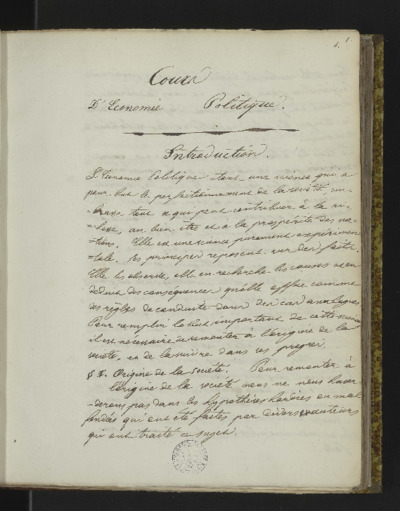 1
Cours
D'Economie Politique.
Introduction.
L'Economie Politique étant une science qui a
pour but le perfectionnement de la société em-
brasse tout ce qui peut contribuer à la ri-
=chesse, au bien être et à la prospérité des na-
=tions. Elle est une science purement expérimen-
=tale. Ses principes reposent sur des faits.
Elle les observe, elle en recherche les causes et en
déduit des conséquences qu'elle offre comme
des règles de conduite dans des cas analogues.
Pour remplir le but important de cette science
il est nécessaire de remonter à l'origine de la
société, et de la suivre dans ses progrès.
§ 1. Origine de la société. Pour remonter à
l'origine de la société nous ne nous hasar-
=derons pas dans les hypothèses hardies ou mal
fondées qui ont été faites par divers auteurs
qui ont traité ce sujet.